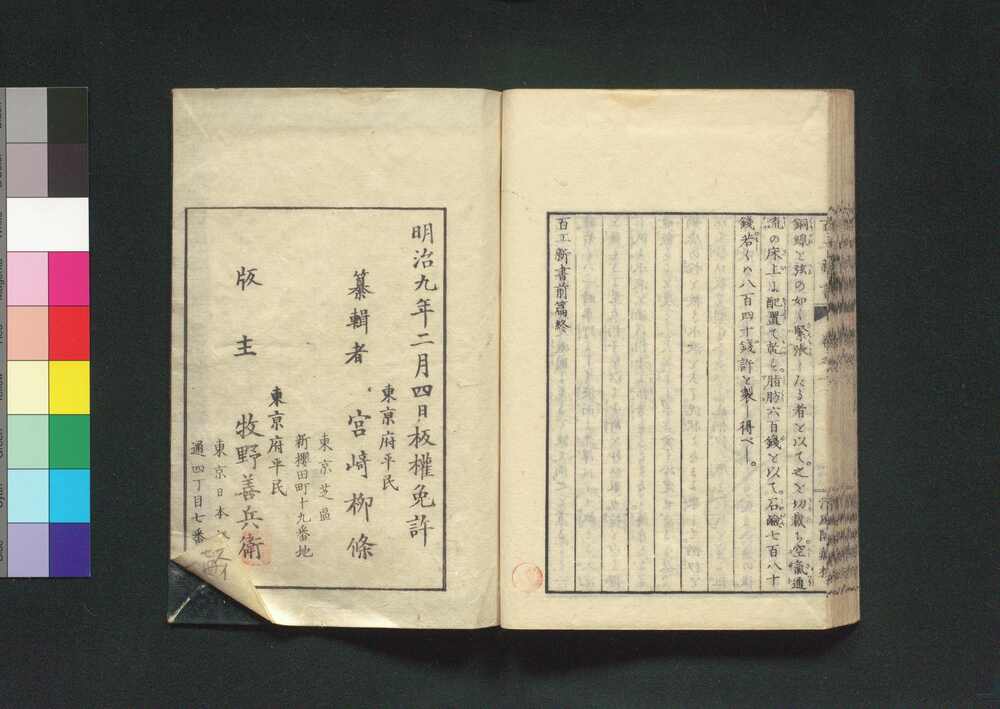 銅線を弦の如く緊張したる者を以て。之を切截し空氣通
流の床上に配置て乾す。脂肪六百錢を以て。石鹼七百八十
錢若くハ八百四十錢許を製し得べし。
百工新書前篇終
明治九年二月四日板權免許
東京府平民
纂輯者 宮崎柳條
東京芝區
新櫻田町十九番地
東京府平民
版主 牧野善兵衛
東京日本
通四丁目七番